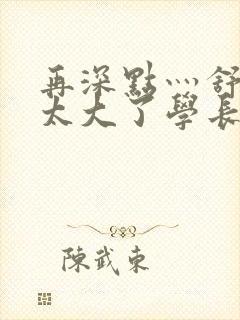 再深點灬舒
太大了學長
陳武東